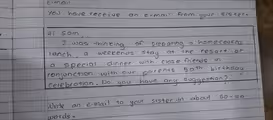 You have receive an e-mail from your sister.
Hi Sam,
I was thinking of
lunch a weekend stay at the resort or
a special dinner with close friends in
conjunction with our parents 50th birthday
celebration. Do you have any suggestion?
Write an e-mail to your sister in about 60-80
words.